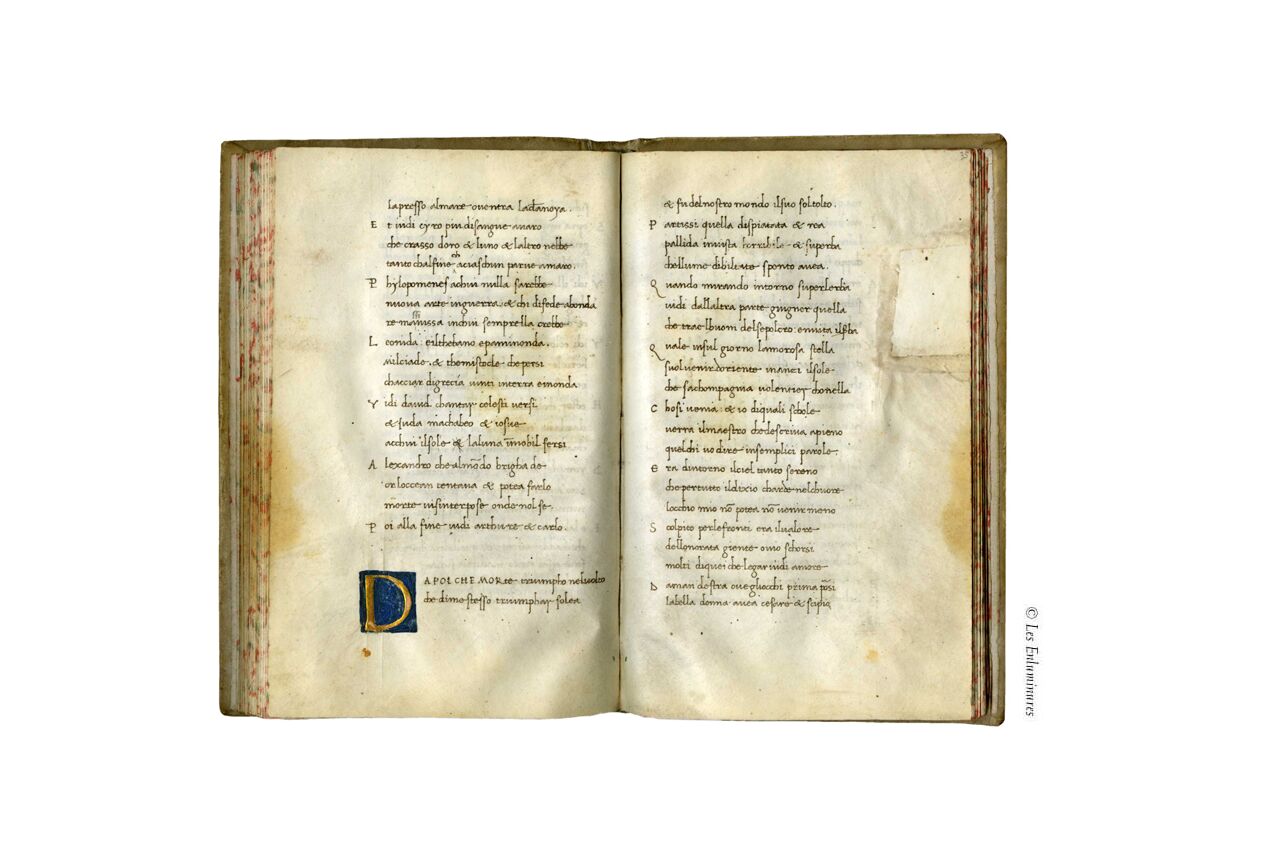 lapresso almare oventra ladanoya.
E t vidi cyro piu disangue avaro
che crasso doro & luno & laltro nebbe
tanto chalfine aciaschun parve amaro.
P hylopomenes achui nulla sarebbe
nuova arte inguerra & chi difede abonda
re massinissa inchui semprella crebbe
L eonida: eilthebano epaminonda.
Milciade & themistocle cheipersi
chacciar digrecia vinti interra einonda
V idi david chantar celesti versi
& Juda machabeo & iosue
acchui ilsole & laluna immobil fersi
A lexandro che almondo brigha de
or loccean tentava & potea farlo
morte visinterpose onde nol fe.
P oi alla fine vidi arthure & carlo.
D A POI CHE MORte triumpho nelvolto
che dime stesso triumphar solea
35
& fu delnostro mondo ilsuo sol tolto.
P artissi quella dispiatata & rea
pallida invista horribile & superba
chellume dibiltate spento avea.
Q uando mirando intorno superlerba
vidi dallaltra parte giugner quella
che trae lhuom delsepolcro: envita ilserba
Q uale insul giorno lamorosa stella
suol venir doriente inanzi ilsole
che sachompagnia volentier chonella
C hosi venia: & io diquali schole
verra ilmaestro chedescriva apieno
quelchi vo dire insemplici parole.
E ra dintorno ilciel tanto sereno
che pertutto ildixio chardea nelchuore
locchio mio non potea non venir meno
S colpito perlefronti era ilvalore
dellonorata giente ovio schorsi
molti diquei che legar vidi amore
D aman destra ove gliocchi prima porsi
labella donna avea cesare & scipio
© Les Enluminures